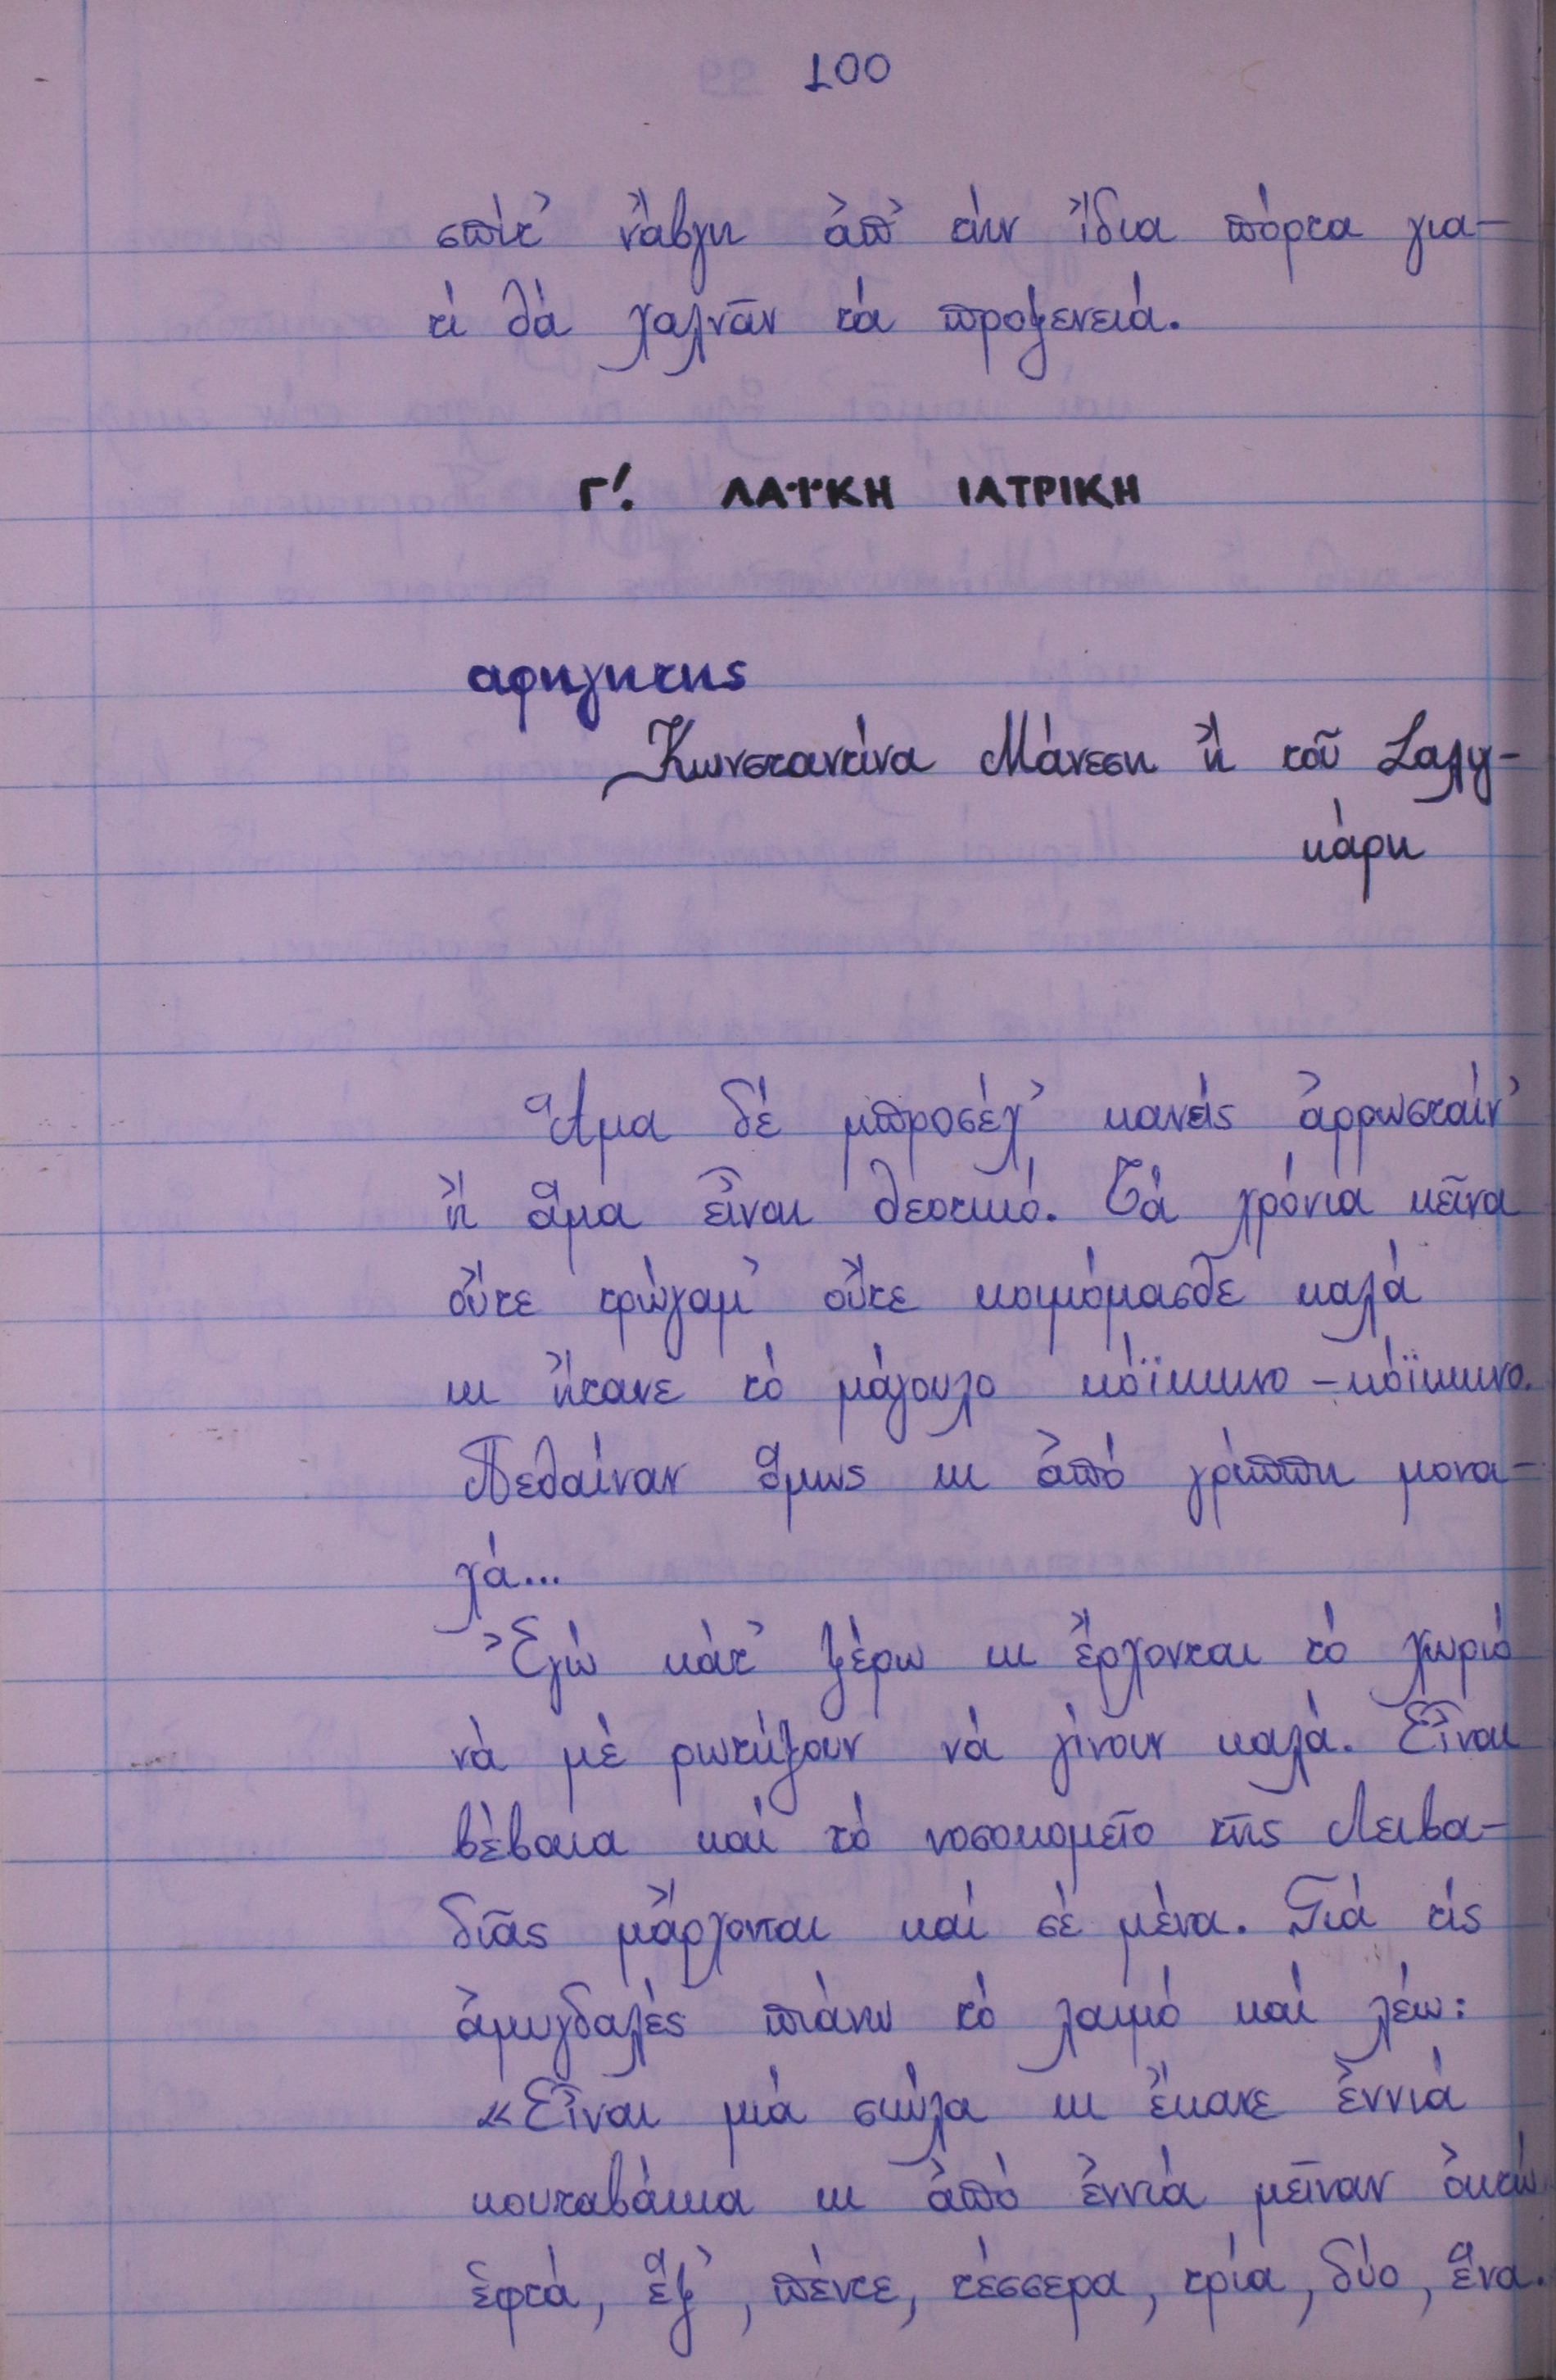 100
σπίτ' νἄβγη ἀπ' τήν ἴδια πόρτα για-
τί θά χαλνᾶν τά προξενειά.
Γ'. ΛΑΪΚΗ ΙΑΤΡΙΚΗ
αφηγητης
Κωνσταντίνα Μάνεση ἤ τοῦ Σαλη-
κάρη
Ἅμα δέ μπροσέχ' κανείς ἀρρωσταίν'
ἤ ἅμα εἶναι θεοτικό. Τά χρόνια κεῖνα
οὔτε τρώγαμ' οὔτε κοιμόμασθε καλά
κι ἤτανε τό μάγουλο κόϊκκινο - κόϊκκινο.
Πεθαίναν ὅμως κι ἀπό γρίππη μονα-
χά...
Ἐγώ κάτ' ξέρω κι ἔρχονται τό χωριό
νά μέ ρωτήξουν νά γίνουν καλά. Εἶναι
βέβαια καί τό νοσοκομεῖο τῆς Λειβα-
διᾶς μἄρχονται καί σέ μένα. Γιά τίς
ἀμυγδαλές πιάνω τό λαιμό καί λέω:
«Εἶναι μιά σκύλα κι ἔκανε ἐννιά
κουταβάκια κι ἀπό ἐννιά μεῖναν ὀκτώ
ἑφτά, ἕξ', πέντε, τέσσερα, τρία, δύο, ἕνα.